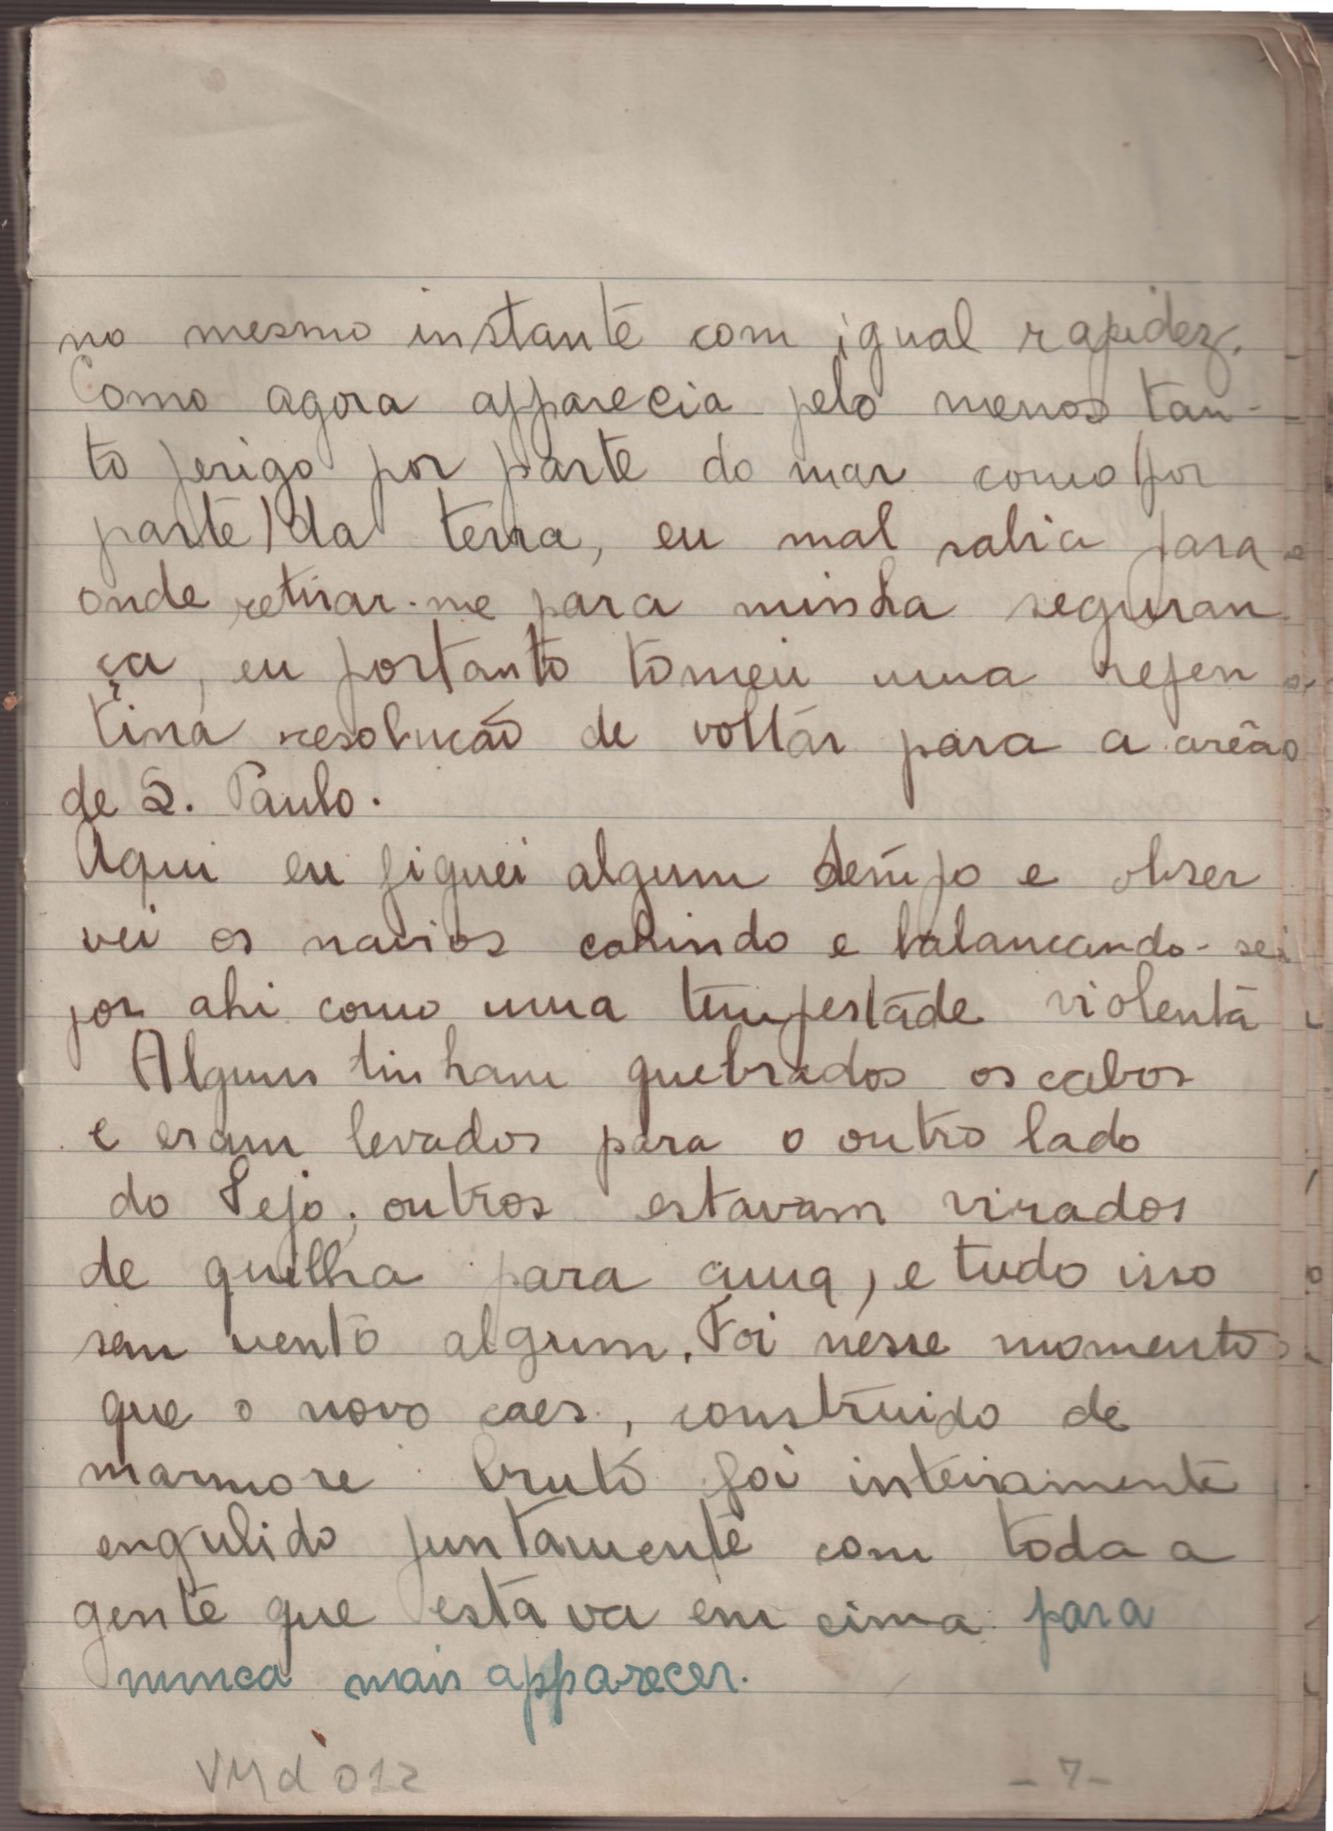 no mesmo instante com igual rapidez.
Como agora apparecia pelo menos tan-
to perigo por parte do mar como (por
parte) da terra, eu mal sabia para
onde retirar-me para minha seguran
ça, eu portanto tomei uma repen
tina resolução de voltar para a areão
de S. Paulo.
Aqui eu fiquei algum tempo e obser
vei os navios cahindo e balancando-se
por ahi como uma tempestade violenta
Alguns tinham quebrados os cabos
e eram levados para o outro lado
do Tejo; outros estavam virados
de quilha para cima, e tudo isso
sem vento algum. Foi nesse momento
que o novo caes, construido de
marmore bruto foi inteiramente
engulido juntamente com toda a
gente que estava em cima para
nunca mais apparecer.
VMd 012
- 7 -